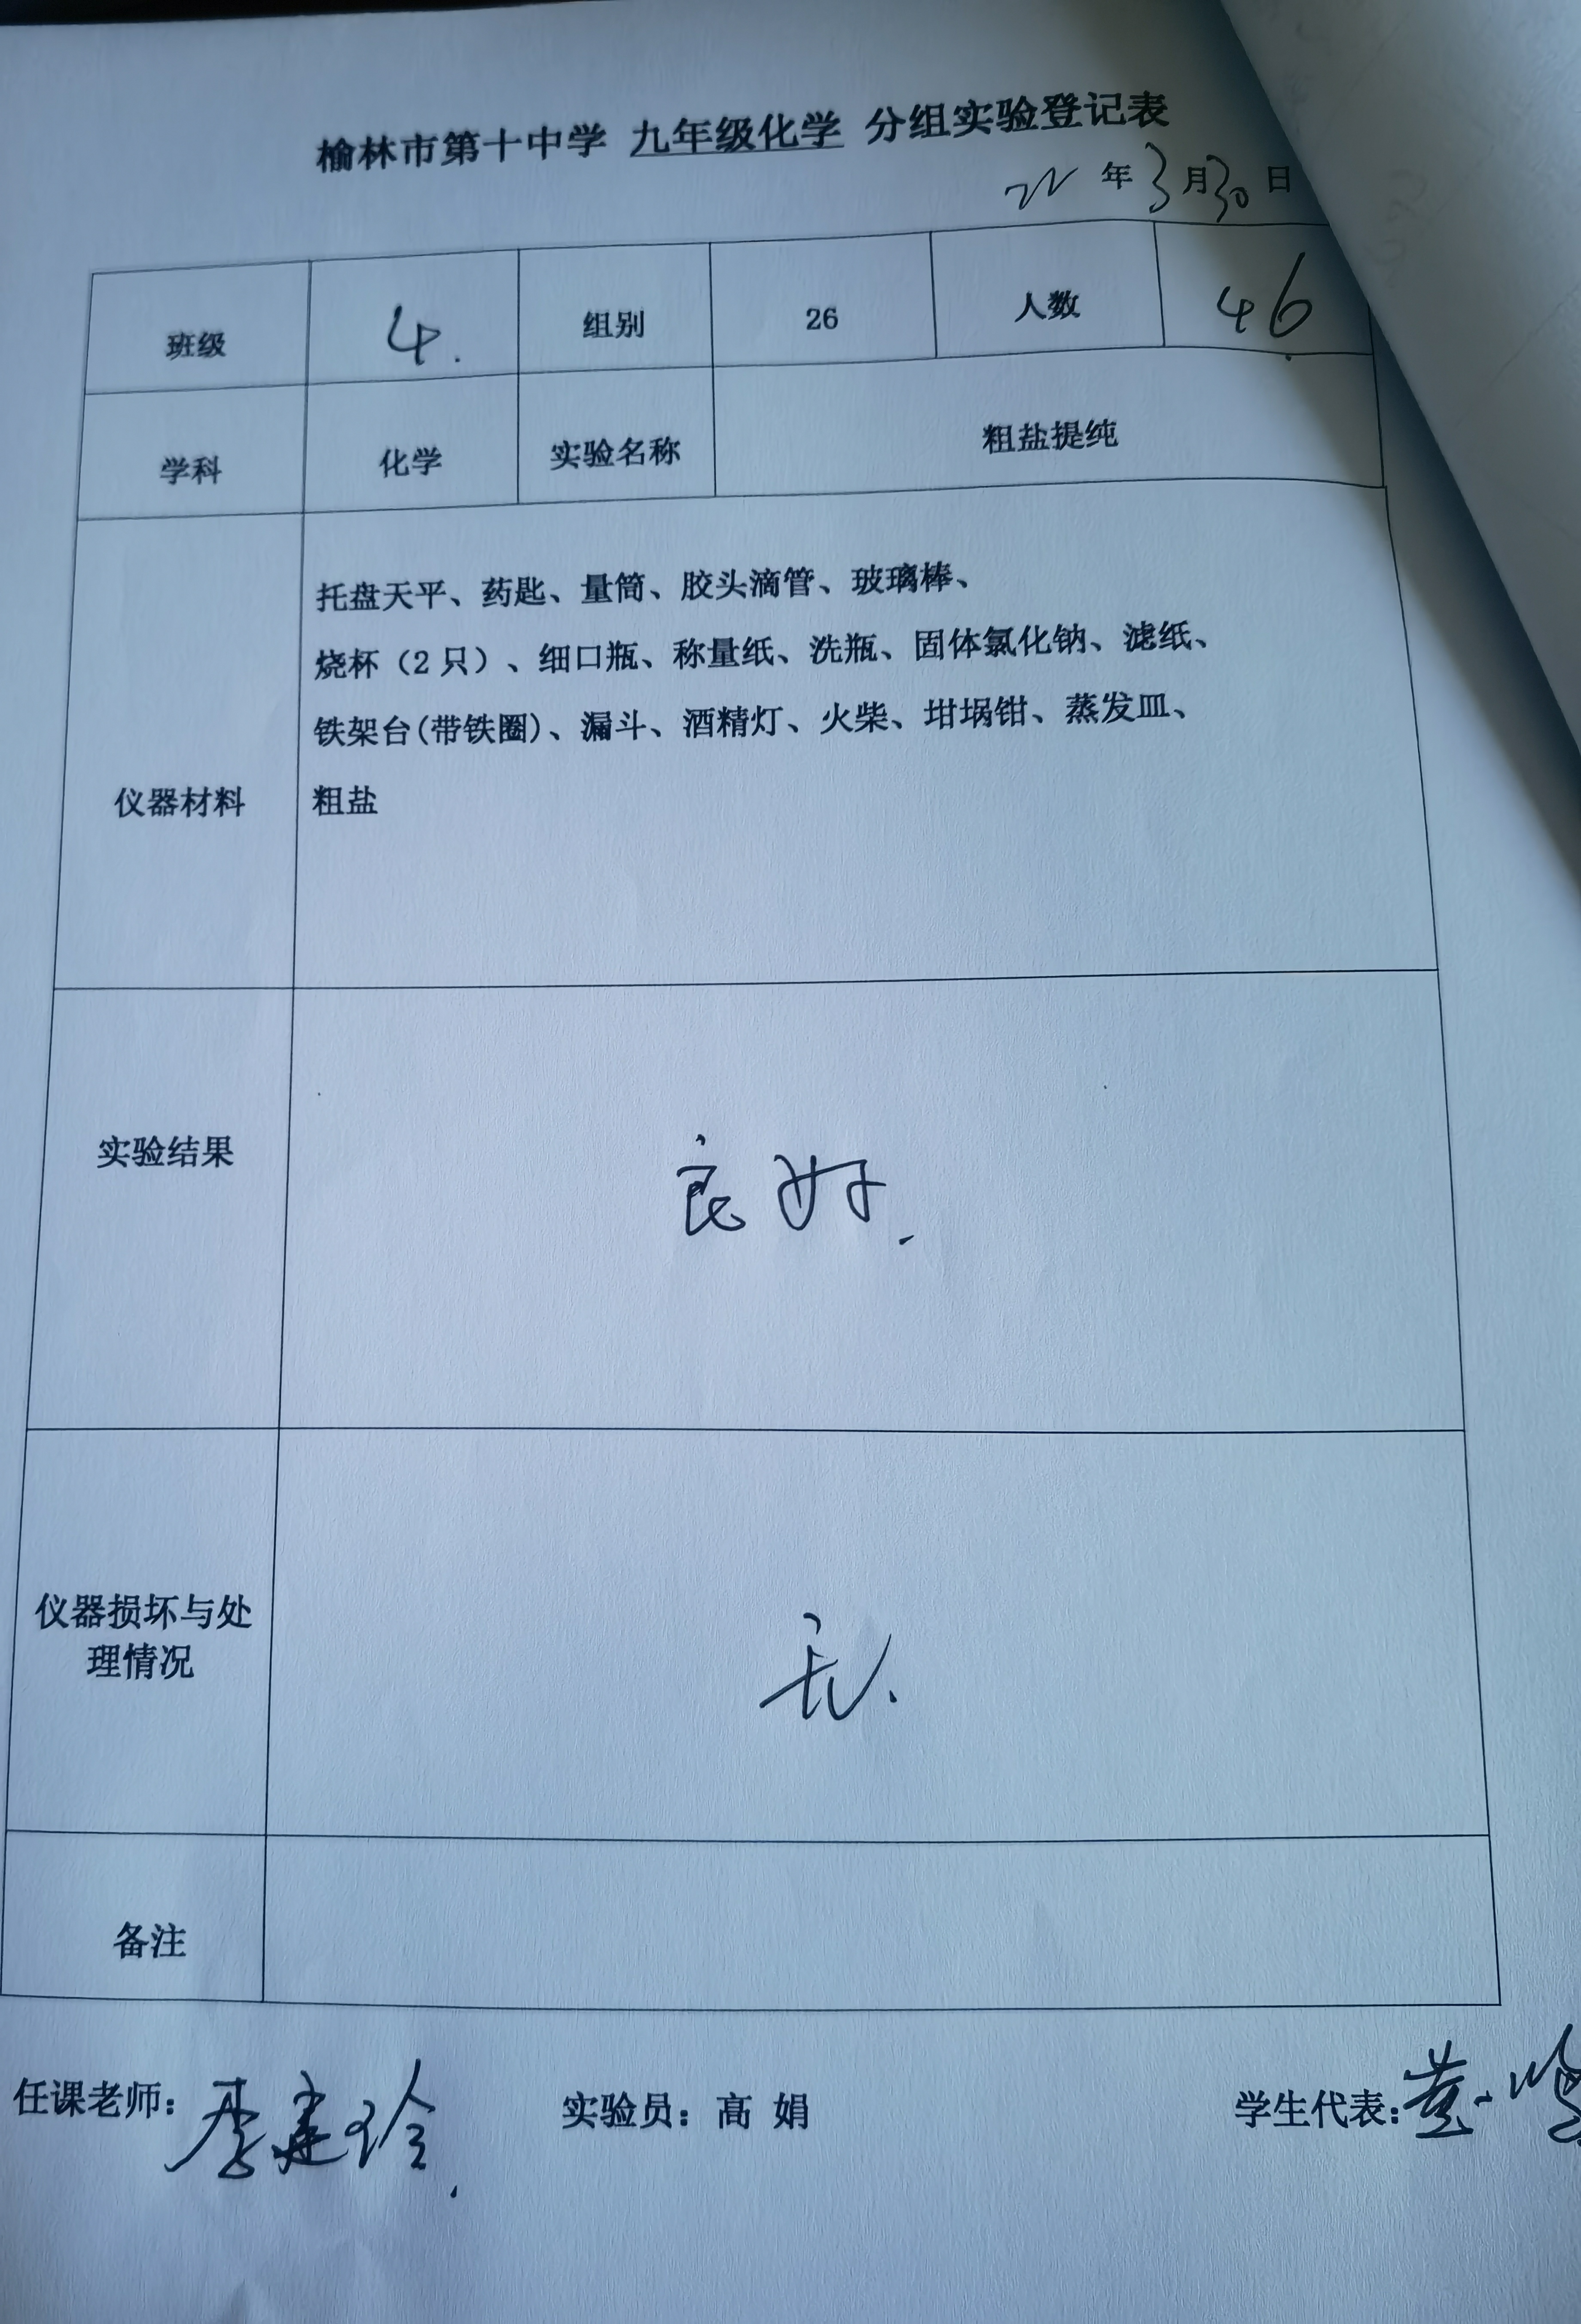 榆林市第十中学 九年级化学 分组实验登记表
22 年 3 月 30 日
班级 4. 组别 26 人数 46
学科 化学 实验名称 粗盐提纯
托盘天平、药匙、量筒、胶头滴管、玻璃棒、
烧杯（2 只）、细口瓶、称量纸、洗瓶、固体氯化钠、滤纸、
铁架台(带铁圈)、漏斗、酒精灯、火柴、坩埚钳、蒸发皿、
仪器材料 粗盐
实验结果 良好.
仪器损坏与处
理情况 无.
备注
任课老师: 李建玲. 实验员: 高 娟 学生代表: 黄